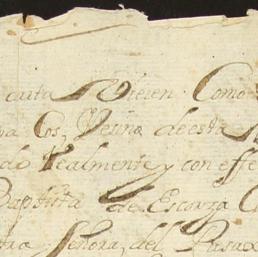 carta Vieren Como
Cos, Vezino de esta
do Realmente y con effe
Baptista de Escorza
tra Señora, del Rosa